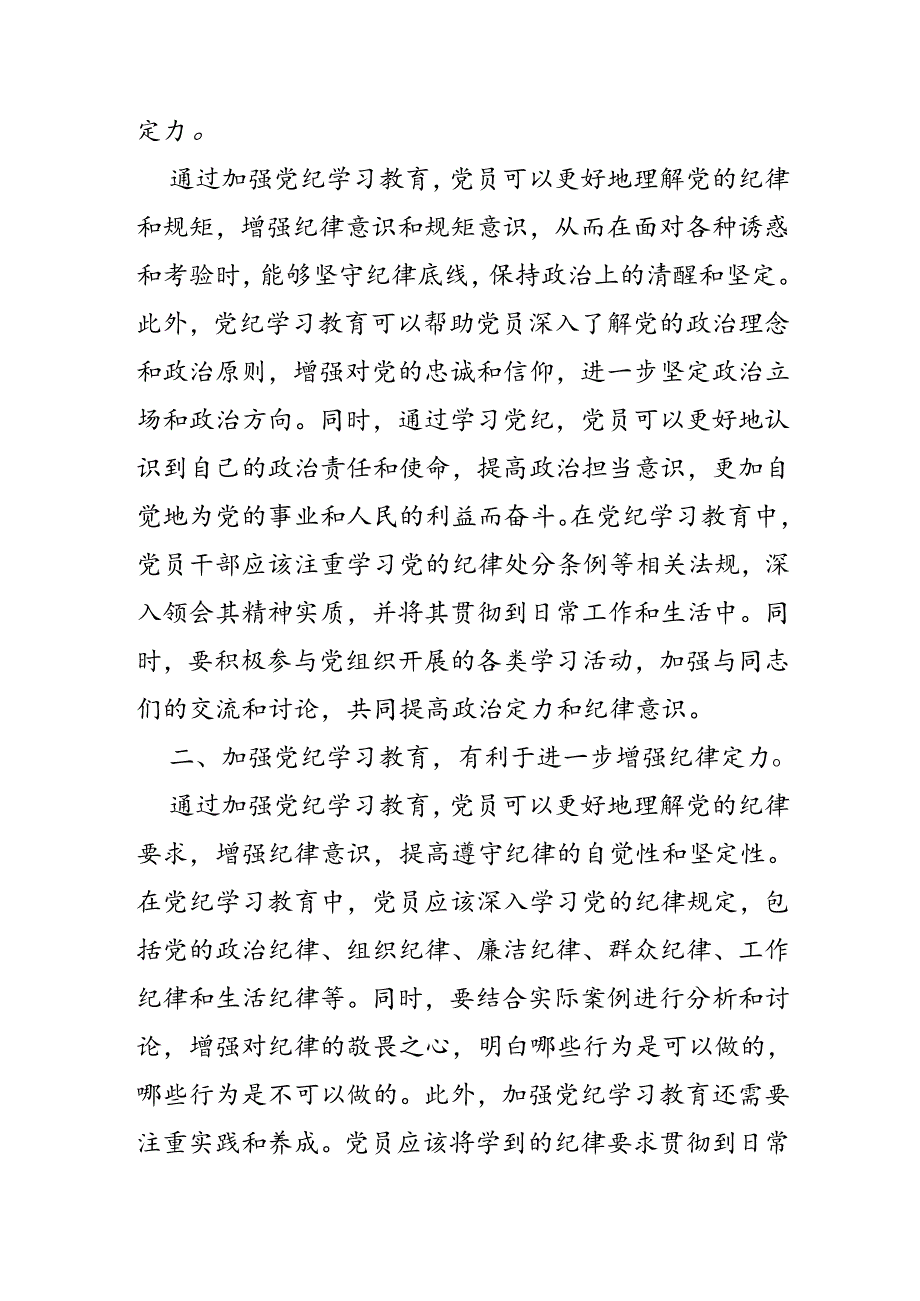 定力。
通过加强党纪学习教育，党员可以更好地理解党的纪律
和规矩，增强纪律意识和规矩意识，从而在面对各种诱惑
和考验时，能够坚守纪律底线，保持政治上的清醒和坚定。
此外，党纪学习教育可以帮助党员深入了解党的政治理念
和政治原则，增强对党的忠诚和信仰，进一步坚定政治立
场和政治方向。同时，通过学习党纪，党员可以更好地认
识到自己的政治责任和使命，提高政治担当意识，更加自
觉地为党的事业和人民的利益而奋斗。在党纪学习教育中，
党员干部应该注重学习党的纪律处分条例等相关法规，深
入领会其精神实质，并将其贯彻到日常工作和生活中。同
时，要积极参与党组织开展的各类学习活动，加强与同志
们的交流和讨论，共同提高政治定力和纪律意识。
二、加强党纪学习教育，有利于进一步增强纪律定力。
通过加强党纪学习教育，党员可以更好地理解党的纪律
要求，增强纪律意识，提高遵守纪律的自觉性和坚定性。
在党纪学习教育中，党员应该深入学习党的纪律规定，包
括党的政治纪律、组织纪律、廉洁纪律、群众纪律、工作
纪律和生活纪律等。同时，要结合实际案例进行分析和讨
论，增强对纪律的敬畏之心，明白哪些行为是可以做的，
哪些行为是不可以做的。此外，加强党纪学习教育还需要
注重实践和养成。党员应该将学到的纪律要求贯彻到日常